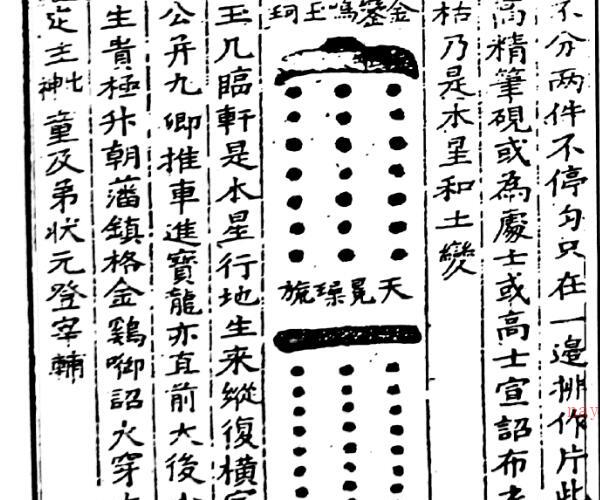 不分两件不停匀只在一邉排作片此
高精筆硯或為處士或高士宣詔布
枯乃是木星和土變
金鑾鳴玉珂
天冕璪旒
玉几臨軒是木星行地生来縱復橫
公并九卿推車進寶龍亦直前大後
生貴極升朝藩鎮格金鷄啣詔火穿
定主七神童及弟状元登宰輔